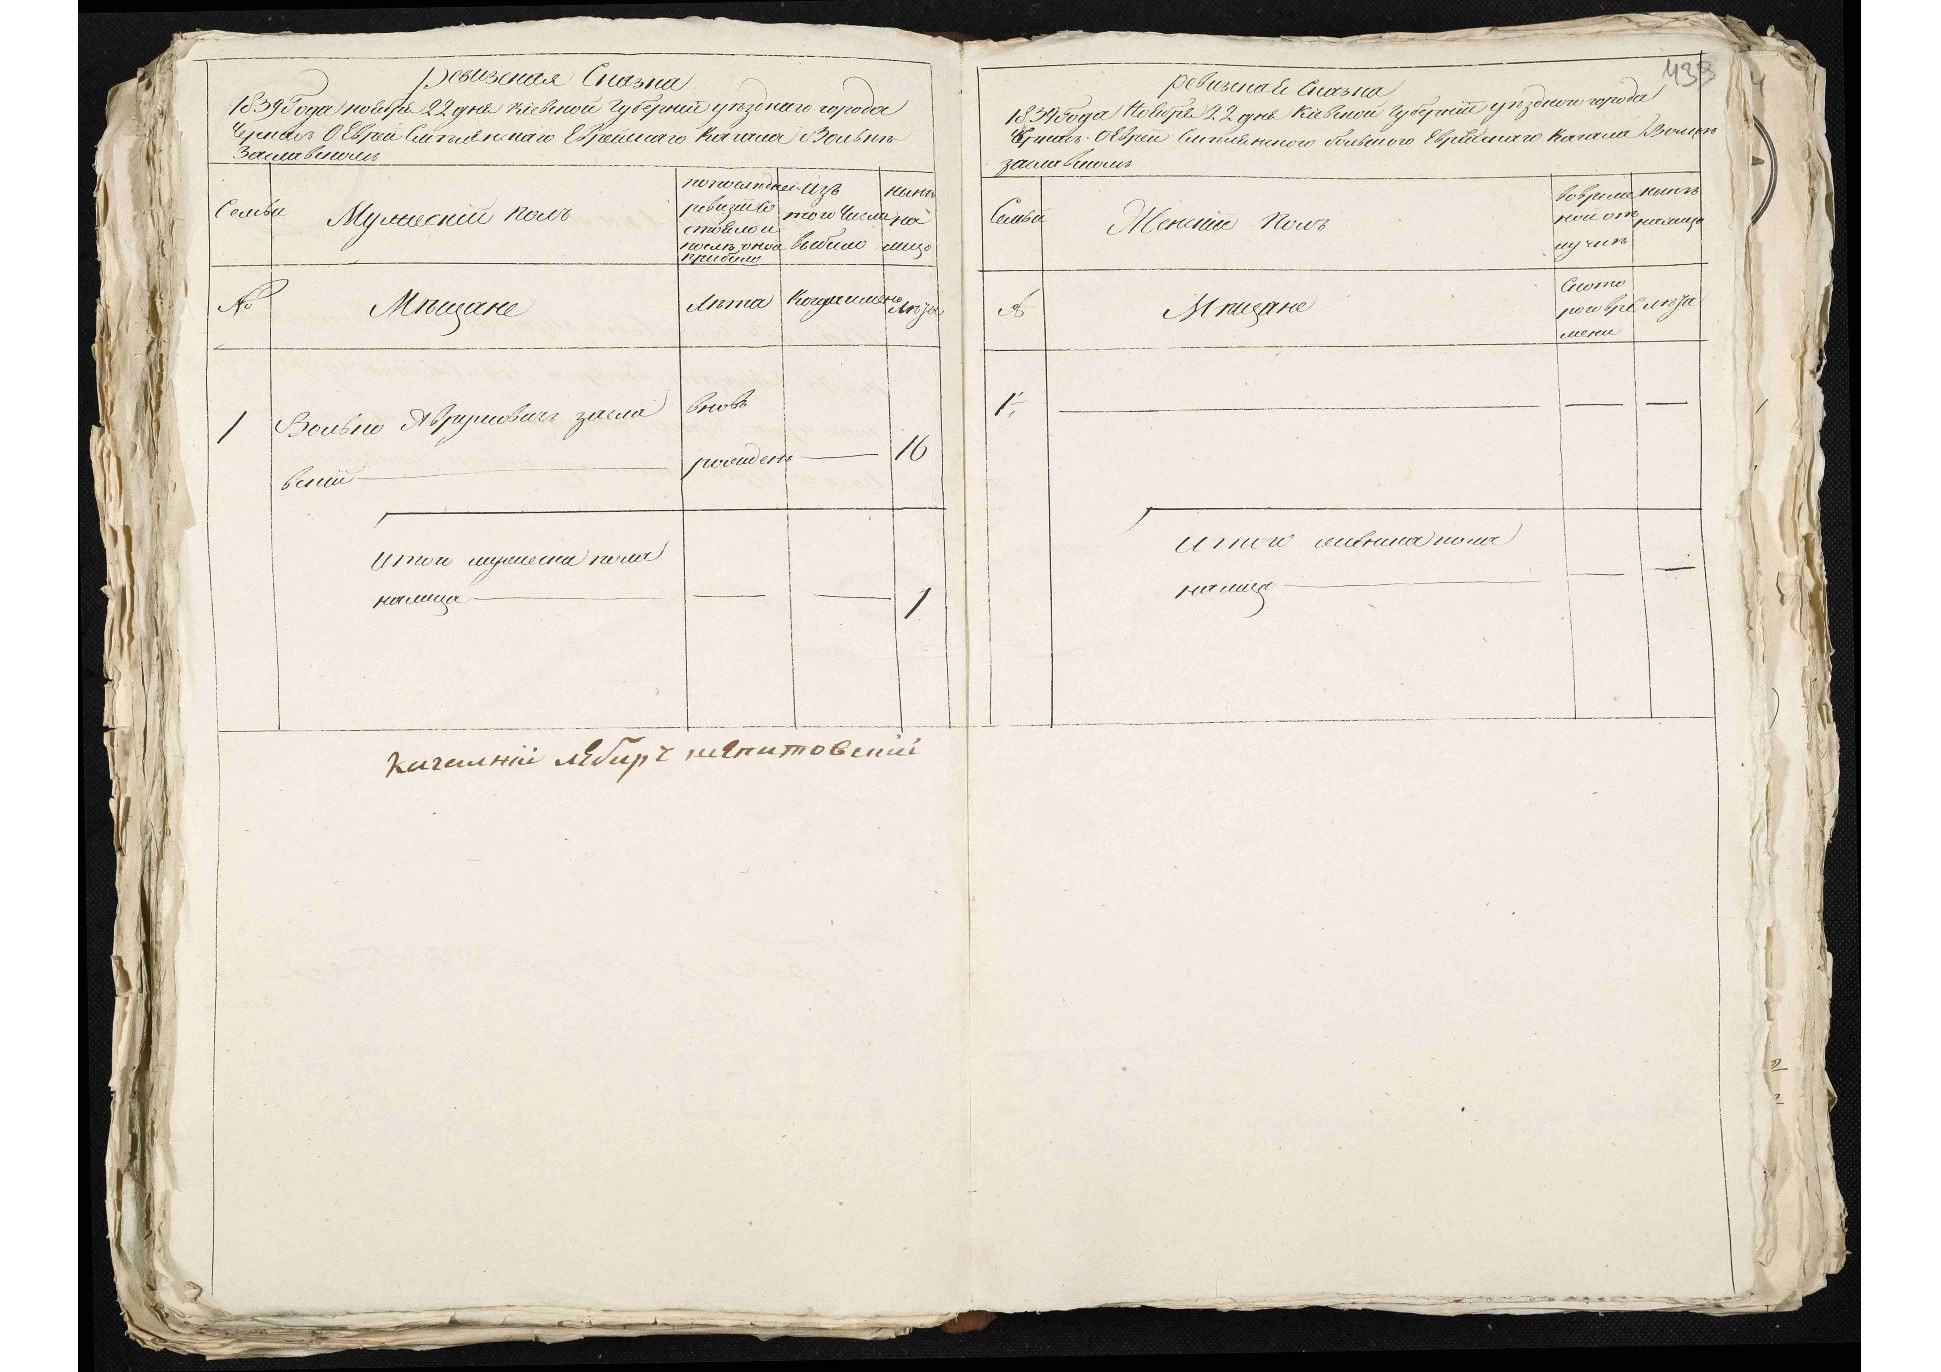 Ревизская Сказка
1839 Года ноября 22 дня Кіевской Губерній уѣзднаго города
Черкасъ О Еврей Смѣлянскаго Еврейскаго Кагала Вольке
Заславскомъ
Семьи
Мужескій полъ
по последней
ревизіи со
стояло и
послѣ оной
прибыло
Изъ
того числа
выбыло
нынѣ
на
лицо
№
Мѣщане
Лѣта
Когда имен
Лѣта
1
Волько Аврумовичъ засла
вскій
вновь
рожденъ
16
Итого мужеска пола
налицо
1
Кагалный
433
ревизская Сказка
1839 Года Ноября 22 дня Кіевской Губерній уѣздного города
Черкасъ О Еврей Смѣлянского большого Еврейскаго Кагала Вольке
заславскомъ
Семьи
Женскій полъ
во време
ной от
лучкѣ
нынѣ
налицо
№
Мѣщане
Съ кото
рого вре
мени
лѣта
1
Итого женска пола
налицо